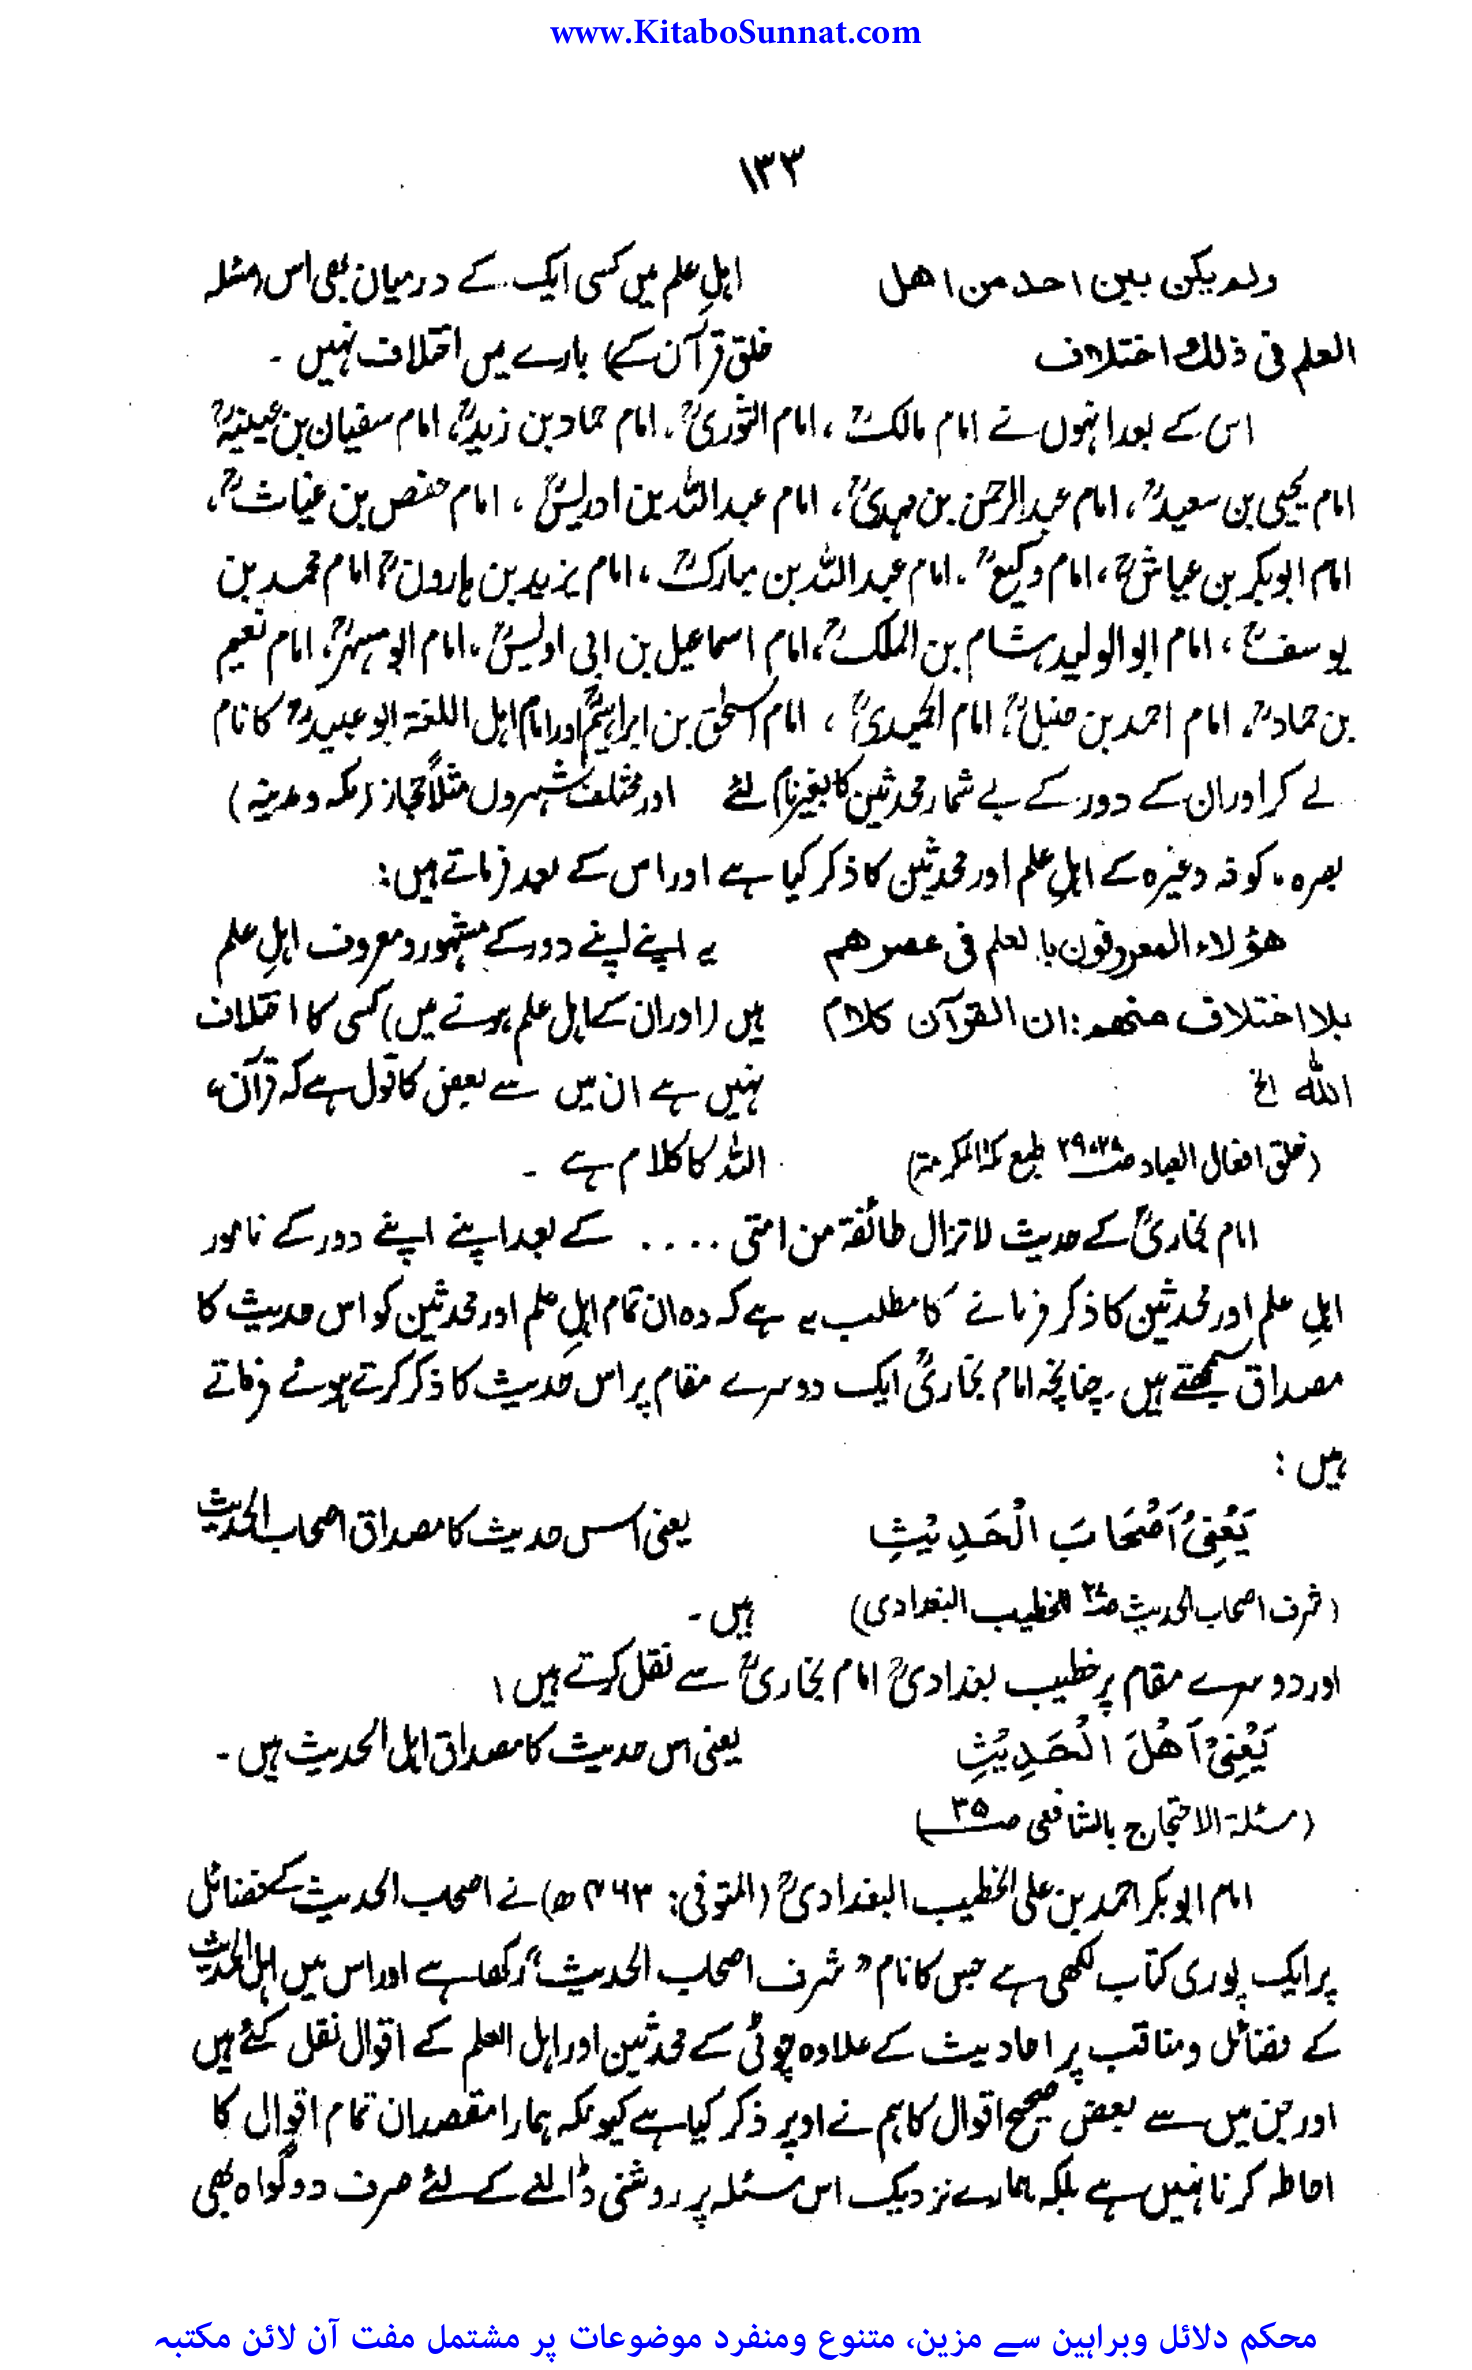 www.KitaboSunnat.com
۱۳۳
ولم یکن بین احد من اھل
اہلِ علم میں کسی ایک کے درمیان بھی اس مسئلہ
العلم فی ذلک اختلاف
خلق قرآن کے) بارے میں اختلاف نہیں ۔
اس کے بعد انہوں نے امام مالکؒ، امام الثوریؒ۔ امام حماد بن زیدؒ، امام سفیان بن عیینہؒ
امام یحیی بن سعیدؒ، امام عبدالرحمن بن مہدیؒ، امام عبداللہ بن ادریسؒ، امام حفص بن غیاثؒ،
امام ابوبکر بن عیاشؒ، امام وکیعؒ۔ امام عبداللہ بن مبارکؒ، امام یزید بن ہارونؒ، امام محمد بن
یوسفؒ، امام ابو الولید ہشام بن الملکؒ، امام اسماعیل بن ابی اویسؒ۔ امام ابو مسہرؒ، امام نعیم
بن حمادؒ، امام احمد بن حنبلؒ، امام الحمیدیؒ، امام اسحٰق بن ابراہیمؒ اور امام اہل اللغۃ ابو عبیدؒ کا نام
لے کر اور ان کے دور کے بے شمار محدثین کا بغیر نام لئے اور مختلف شہروں مثلاً حجاز (مکہ و مدینہ)
بصرہ، کوفہ وغیرہ کے اہلِ علم اور محدثین کا ذکر کیا ہے اور اس کے بعد فرماتے ہیں:
ھؤلاء المعروفون بالعلم فی عصرھم
یہ اپنے اپنے دور کے مشہور و معروف اہلِ علم
بلا اختلاف منھم: ان القرآن کلام
ہیں (اور ان کے اہل علم ہونے میں) کسی کا اختلاف
اللہ الخ
نہیں ہے ان میں سے بعض کا قول ہے کہ قرآن،
(خلق افعال العباد ص ۲۸، ۲۹ طبع مکۃ المکرمۃ)
اللہ کا کلام ہے ۔
امام بخاریؒ کے حدیث لاتزال طائفۃ من امتی .... کے بعد اپنے اپنے دور کے نامور
اہلِ علم اور محدثین کا ذکر فرمانے کا مطلب یہ ہے کہ وہ ان تمام اہلِ علم اور محدثین کو اس حدیث کا
مصداق سمجھتے ہیں۔ چنانچہ امام بخاریؒ ایک دوسرے مقام پر اس حدیث کا ذکر کرتے ہوئے فرماتے
ہیں :
یَعْنِیْ اَصْحَابَ الْحَدِیْثِ
یعنی اس حدیث کا مصداق اصحاب الحدیث
(شرف اصحاب الحدیث ص للخطیب البغدادی)
ہیں ۔
اور دوسرے مقام پر خطیب بغدادیؒ امام بخاریؒ سے نقل کرتے ہیں:
یَعْنِیْ اَھْلَ الْحَدِیْثِ
یعنی اس حدیث کا مصداق اہل الحدیث ہیں ۔
(مسئلۃ الاحتجاج بالشافعی ص ۳۵)
امام ابوبکر احمد بن علی الخطیب البغدادیؒ (المتوفی: ۴۶۳ ھ) نے اصحاب الحدیث کے فضائل
پر ایک پوری کتاب لکھی ہے جس کا نام "شرف اصحاب الحدیث" رکھا ہے اور اس میں اہل الحدیث
کے فضائل و مناقب پر احادیث کے علاوہ چوٹی کے محدثین اور اہل العلم کے اقوال نقل کئے ہیں
اور جن میں سے بعض صحیح اقوال کا ہم نے اوپر ذکر کیا ہے کیونکہ ہمارا مقصد ان تمام اقوال کا
احاطہ کرنا نہیں ہے بلکہ ہمارے نزدیک اس مسئلہ پر روشنی ڈالنے کے لئے صرف دو گواہ بھی
محکم دلائل وبراہین سے مزین، متنوع ومنفرد موضوعات پر مشتمل مفت آن لائن مکتبہ